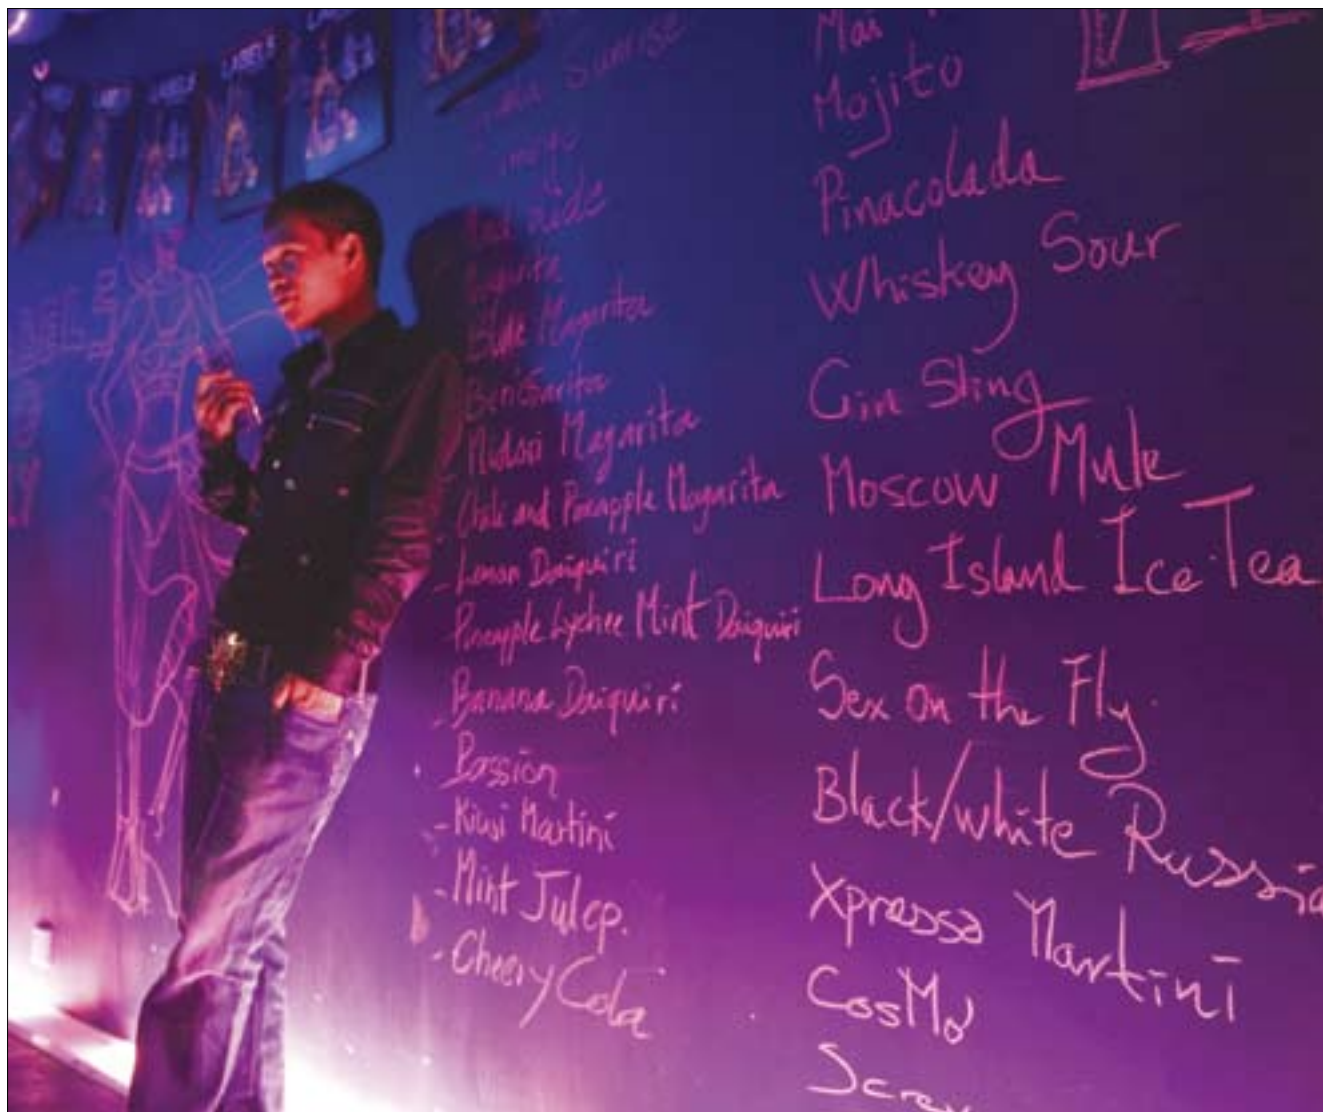 LABELS
Sunrise
ride
Blue Magarita
Bengarita
Midori Magarita
Chili and Pineapple Magarita
- Lemon Daiquiri
Pineapple Lychee Mint Daiquiri
- Banana Daiquiri
Passion
- Kiwi Martini
- Mint Julep.
- Cheery Cola
Mai
Mojito
Pinacolada
Whiskey Sour
Gin Sling
Moscow Mule
Long Island Ice Tea
Sex on the Fly.
Black/white Russia
Xpresso Martini
CosMo
Screw